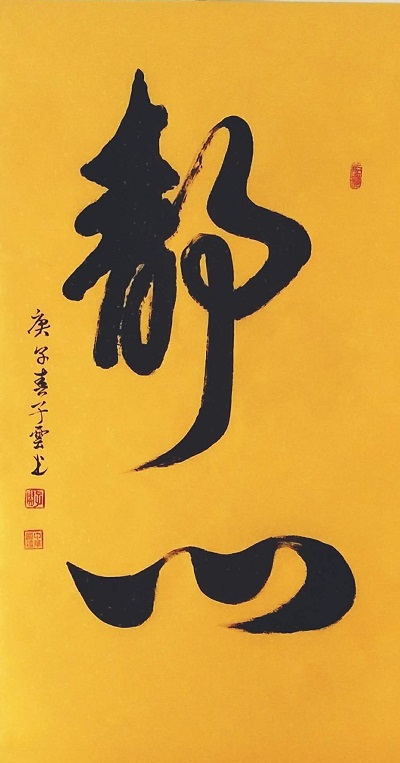 靜心
庚子春子雲书